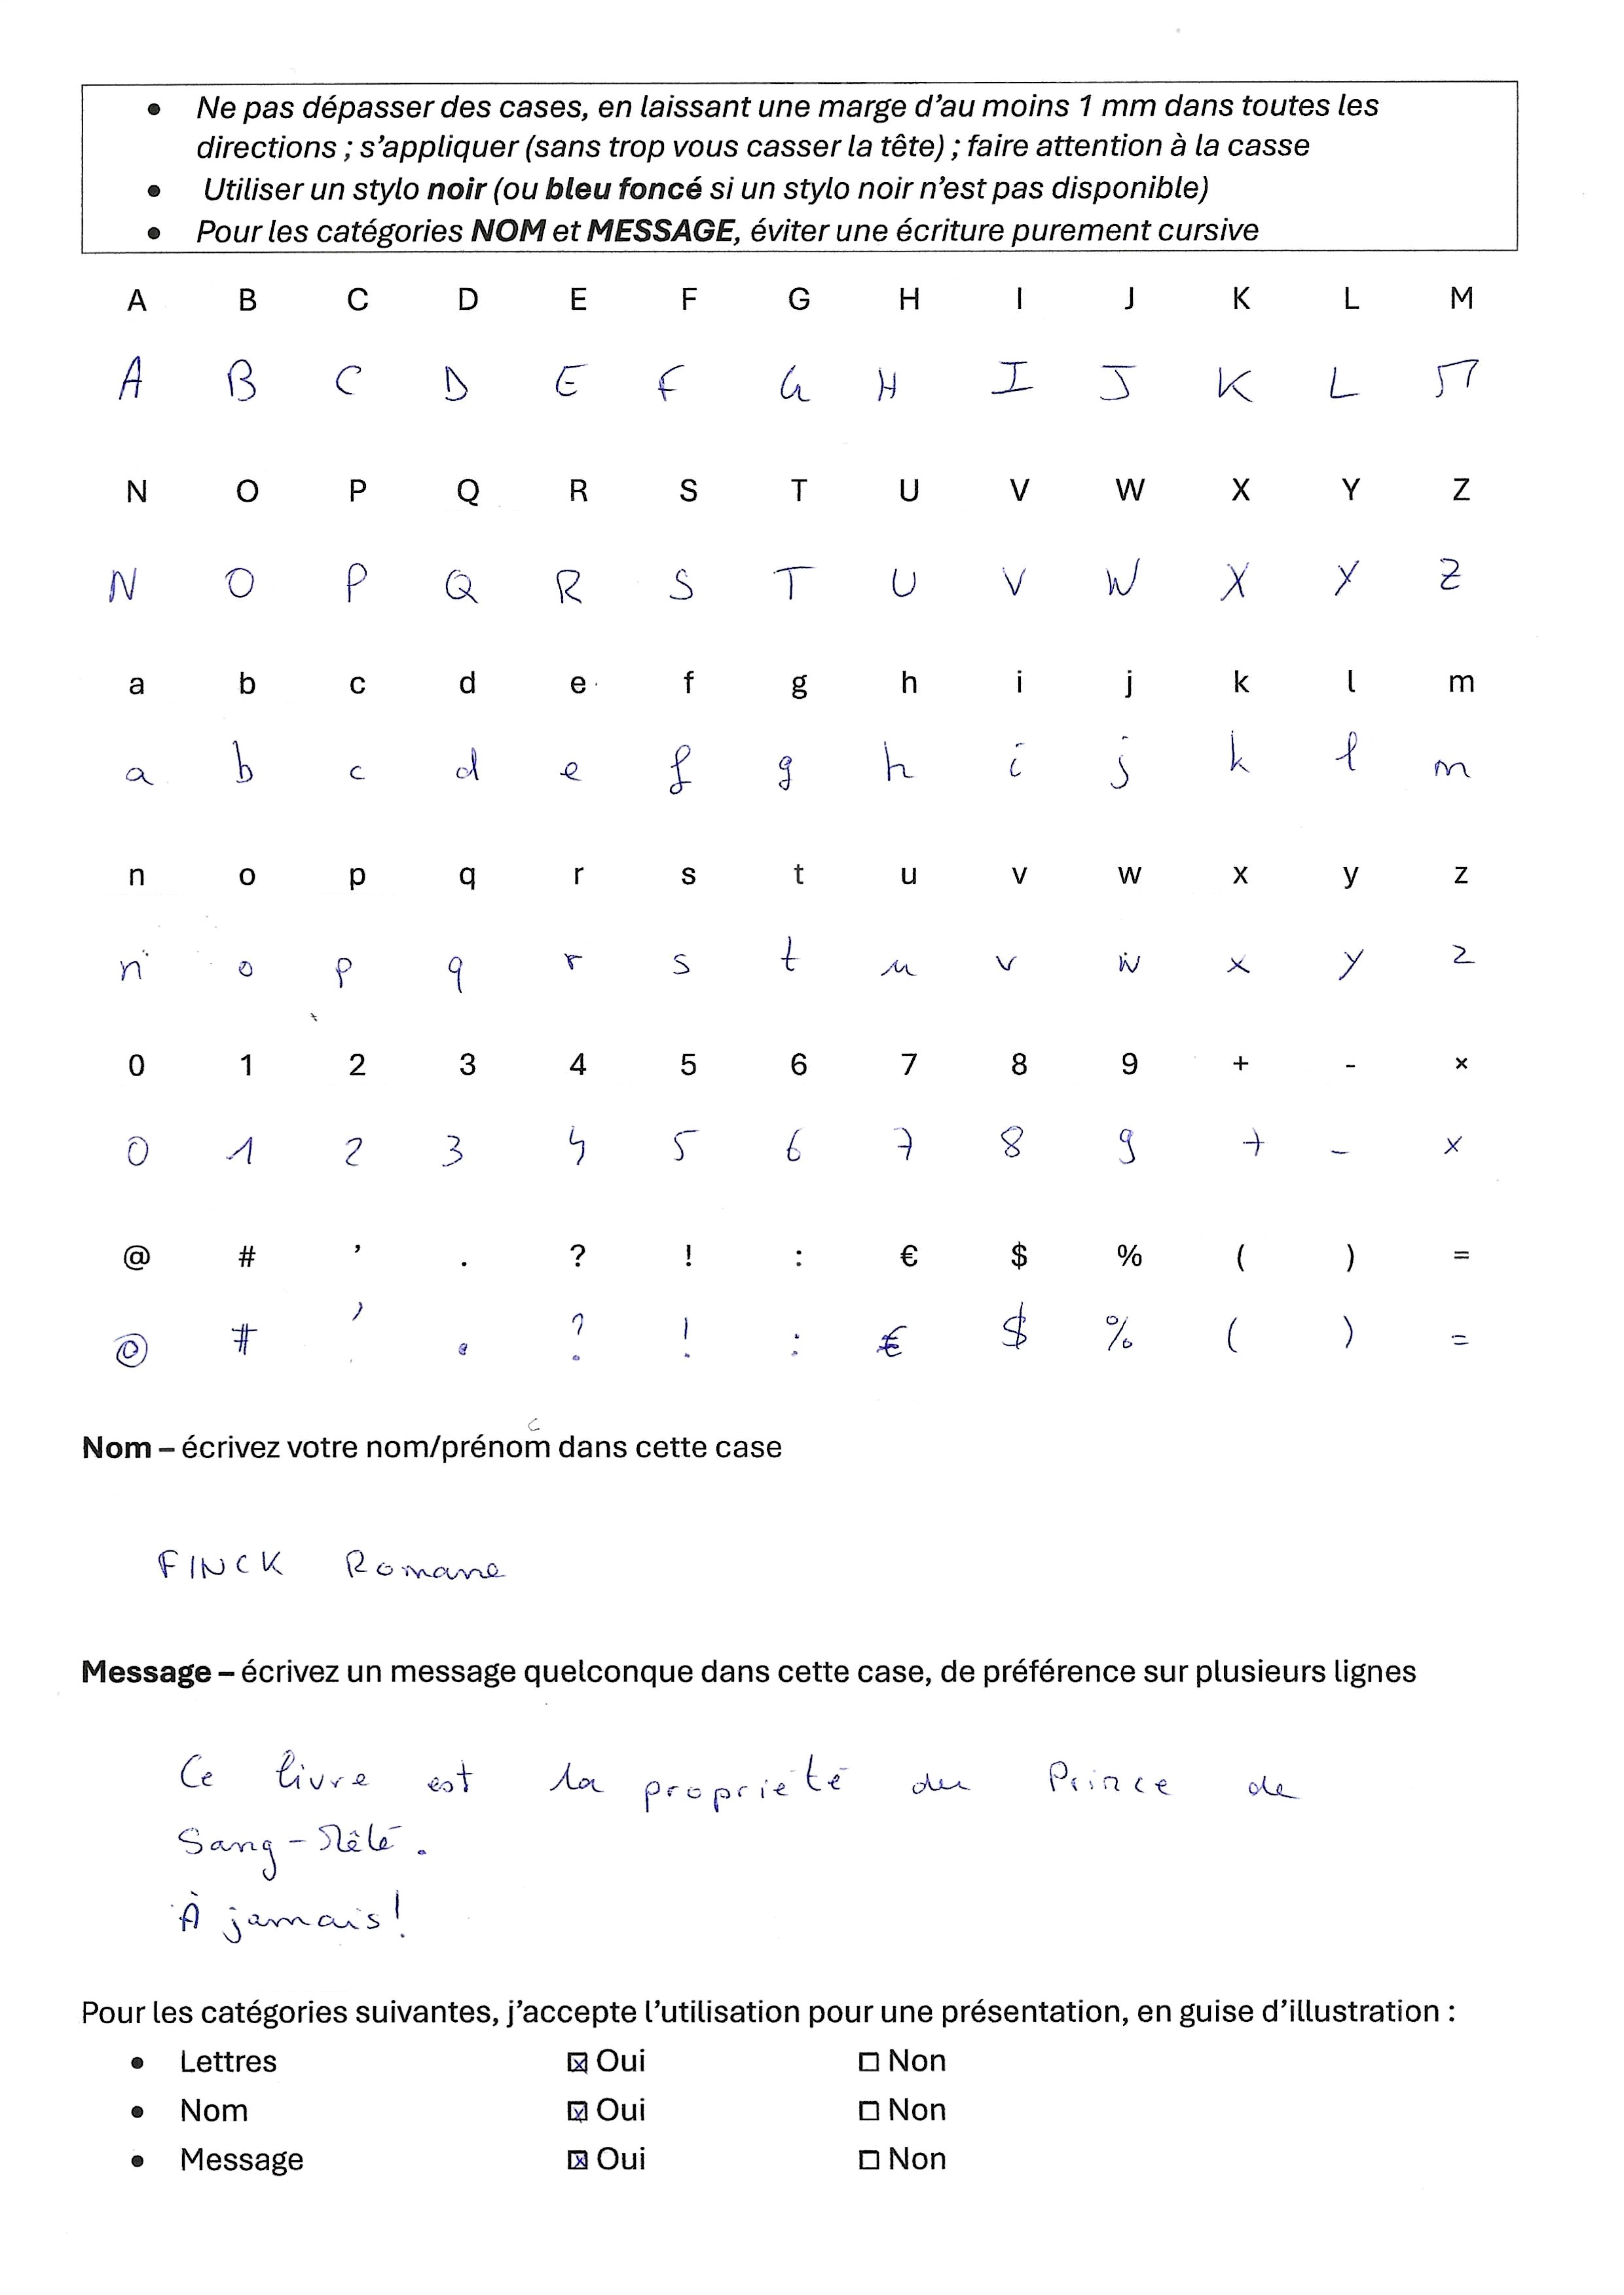 • Ne pas dépasser des cases, en laissant une marge d'au moins 1 mm dans toutes les
directions ; s'appliquer (sans trop vous casser la tête) ; faire attention à la casse
• Utiliser un stylo noir (ou bleu foncé si un stylo noir n'est pas disponible)
• Pour les catégories NOM et MESSAGE, éviter une écriture purement cursive
A B C D E F G H I J K L M
A B C D E F G H I J K L M
N O P Q R S T U V W X Y Z
N O P Q R S T U V W X Y Z
a b c d e f g h i j k l m
a b c d e f g h i j k l m
n o p q r s t u v w x y z
n o p q r s t u v w x y z
0 1 2 3 4 5 6 7 8 9 + - ×
0 1 2 3 4 5 6 7 8 9 + - ×
@ # ’ . ? ! : € $ % ( ) =
@ # ’ . ? ! : € $ % ( ) =
Nom – écrivez votre nom/prénom dans cette case
FINCK Romane
Message – écrivez un message quelconque dans cette case, de préférence sur plusieurs lignes
Ce livre est la propriété du Prince de
Sang-Mêlé.
À jamais!
Pour les catégories suivantes, j'accepte l'utilisation pour une présentation, en guise d'illustration :
• Lettres ☒ Oui ☐ Non
• Nom ☒ Oui ☐ Non
• Message ☒ Oui ☐ Non